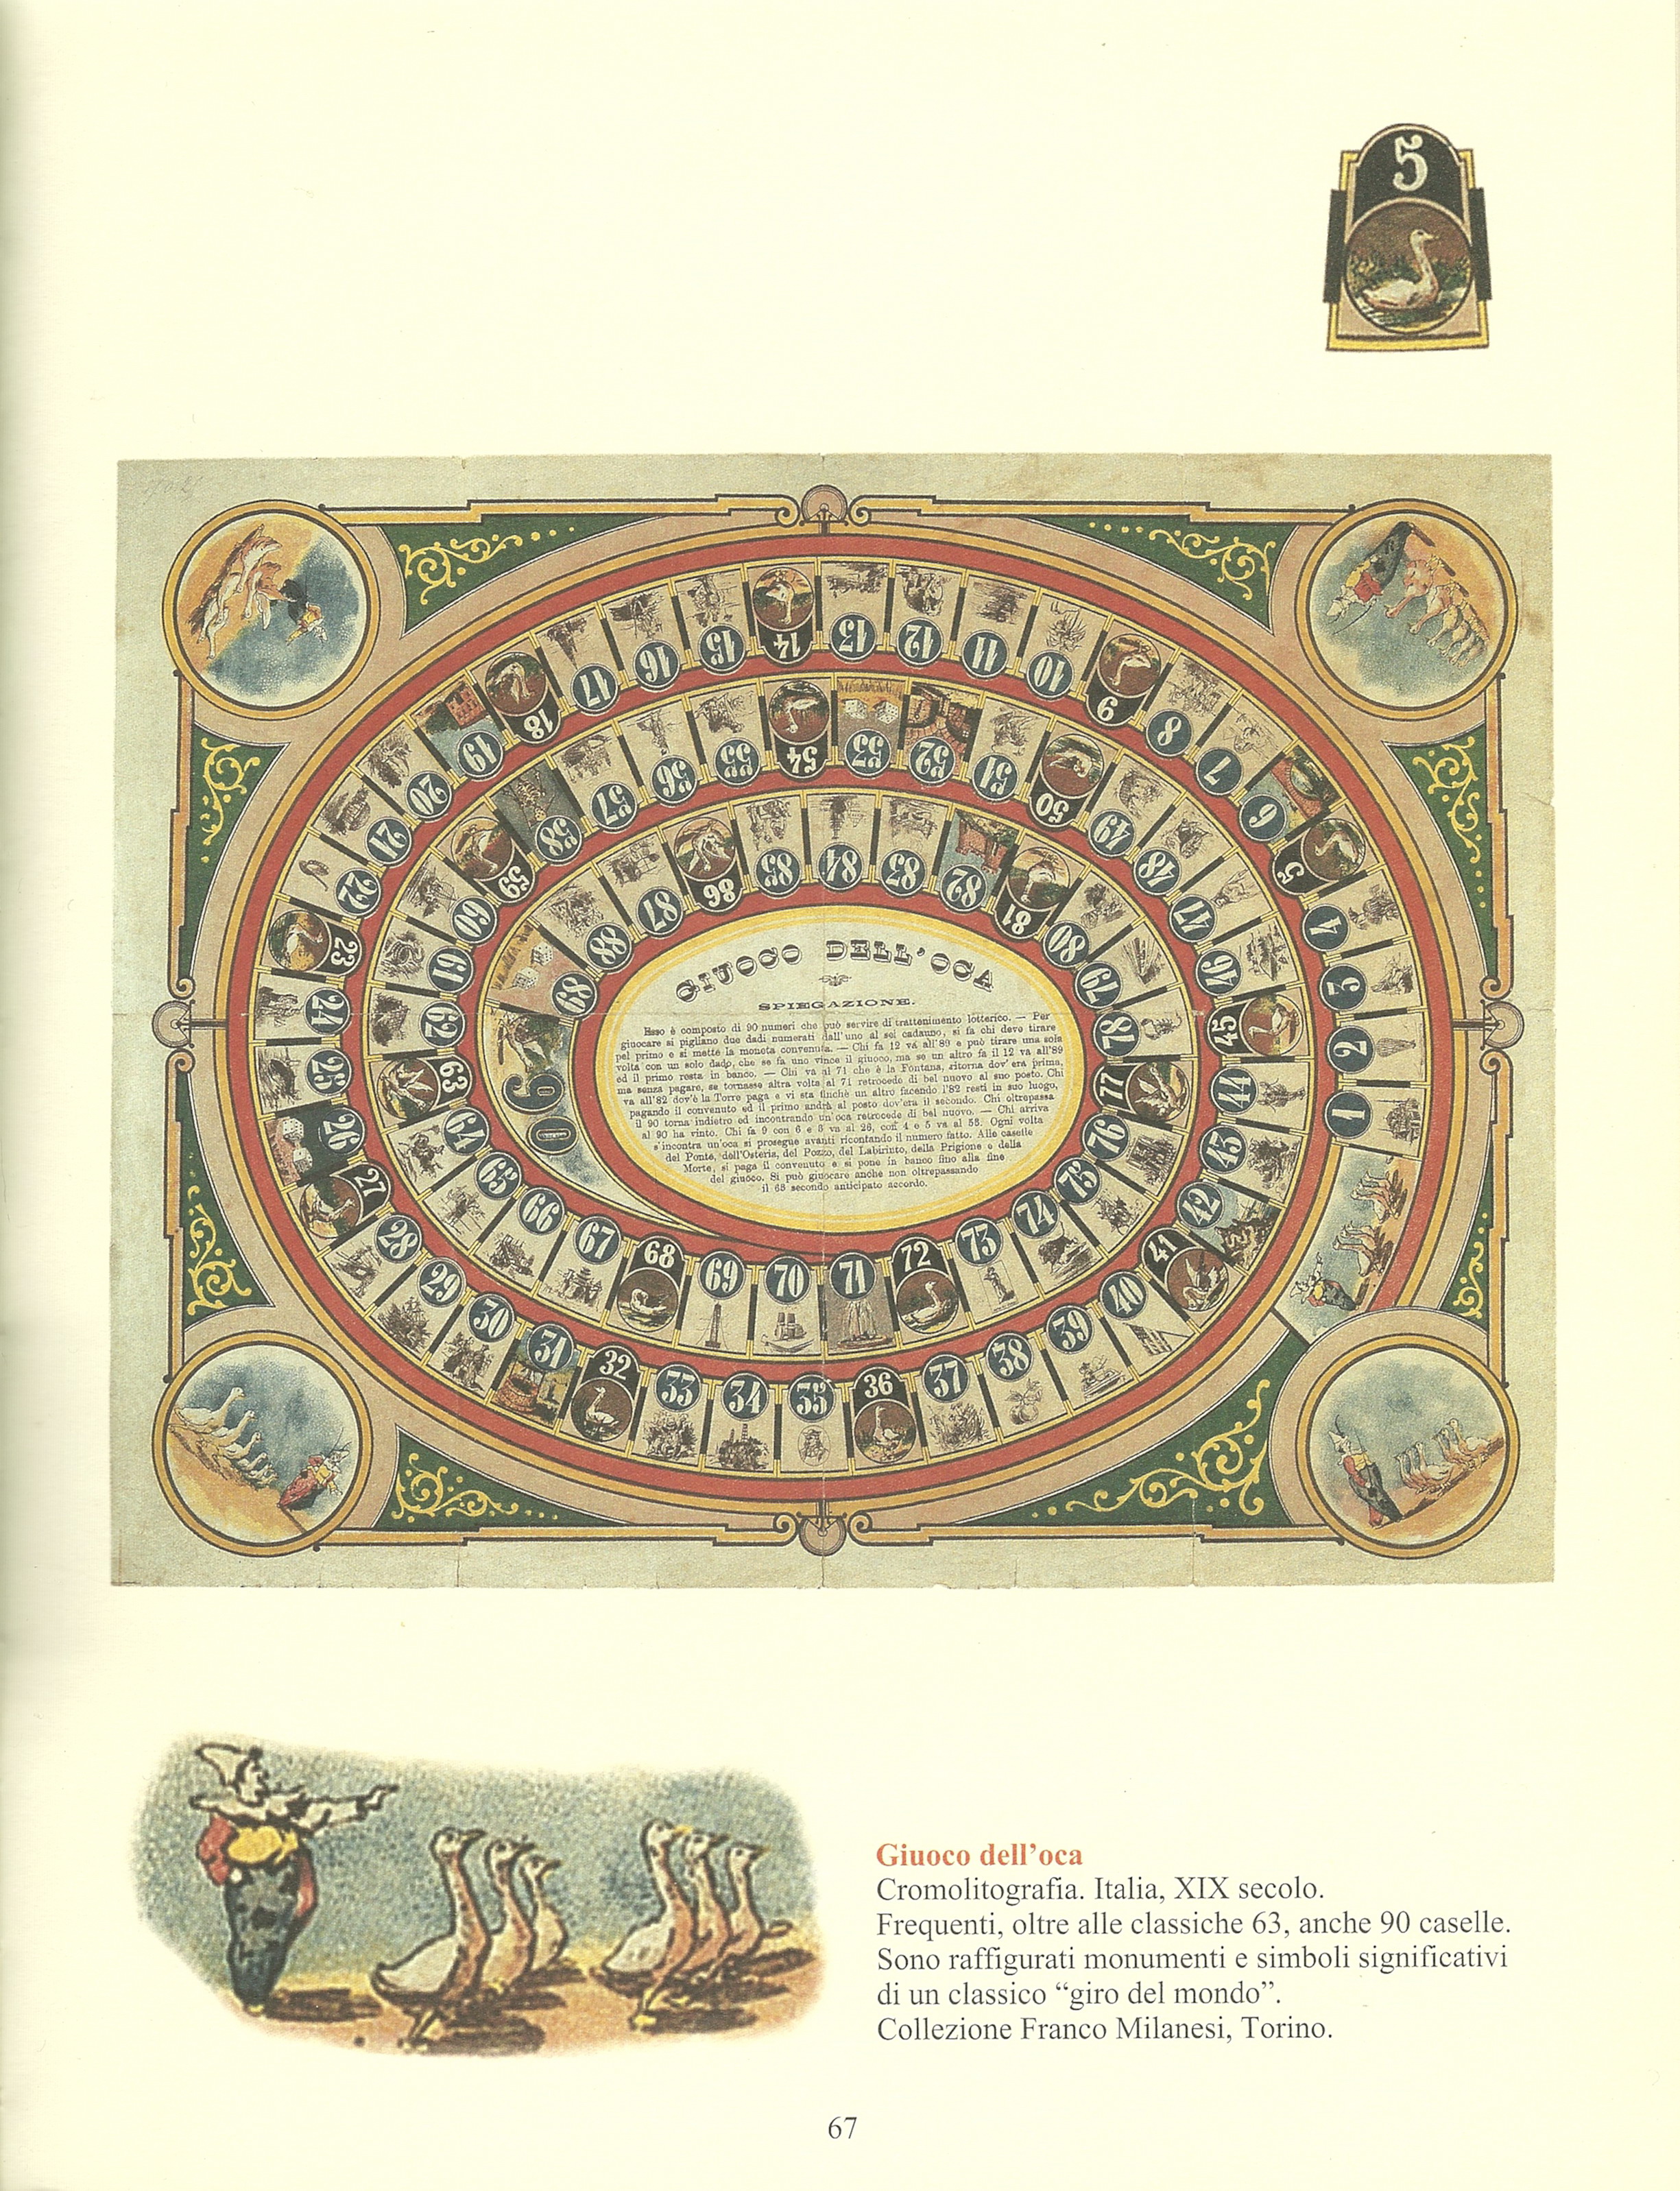 5
GIUOCO DELL'OCA
SPIEGAZIONE.
Esso è composto di 90 numeri che può servire di trattenimento lotterico. — Per
giuocare si pigliano due dadi numerati dall'uno al sei cadauno, si fa chi deve tirare
pel primo e si mette la moneta convenuta. — Chi fa 12 va all'89 e può tirare una sola
volta con un solo dado, che se fa uno vince il giuoco, ma se un altro fa il 12 va all'89
ed il primo resta in bando. — Chi va al 71 che è la Fontana, ritorna dov'era prima,
ma senza pagare, se tornasse altra volta al 71 retrocede di bel nuovo al suo posto. Chi
va all'82 dov'è la Torre paga e vi sta finchè un altro facendo l'82 resti in suo luogo,
pagando il convenuto ed il primo andrà al posto dov'era il secondo. Chi oltrepassa
il 90 torna indietro ed incontrando un'oca retrocede di bel nuovo. — Chi arriva
al 90 ha vinto. Chi fa 9 con 6 e 3 va al 26, con 4 e 5 va al 53. Ogni volta
s'incontra un'oca si prosegue avanti ricontando il numero fatto. Alle caselle
del Ponte, dell'Osteria, del Pozzo, del Labirinto, della Prigione e della
Morte, si paga il convenuto e si pone in banco fino alla fine
del giuoco. Si può giuocare anche non oltrepassando
il 63 secondo anticipato accordo.
1
2
3
4
5
6
7
8
9
10
11
12
13
14
15
16
17
18
19
20
21
22
23
24
25
26
27
28
29
30
31
32
33
34
35
36
37
38
39
40
41
42
43
44
45
46
47
48
49
50
51
52
53
54
55
56
57
58
59
60
61
62
63
64
65
66
67
68
69
70
71
72
73
74
75
76
77
78
79
80
81
82
83
84
85
86
87
88
89
90
Giuoco dell'oca
Cromolitografia. Italia, XIX secolo.
Frequenti, oltre alle classiche 63, anche 90 caselle.
Sono raffigurati monumenti e simboli significativi
di un classico “giro del mondo”.
Collezione Franco Milanesi, Torino.
67